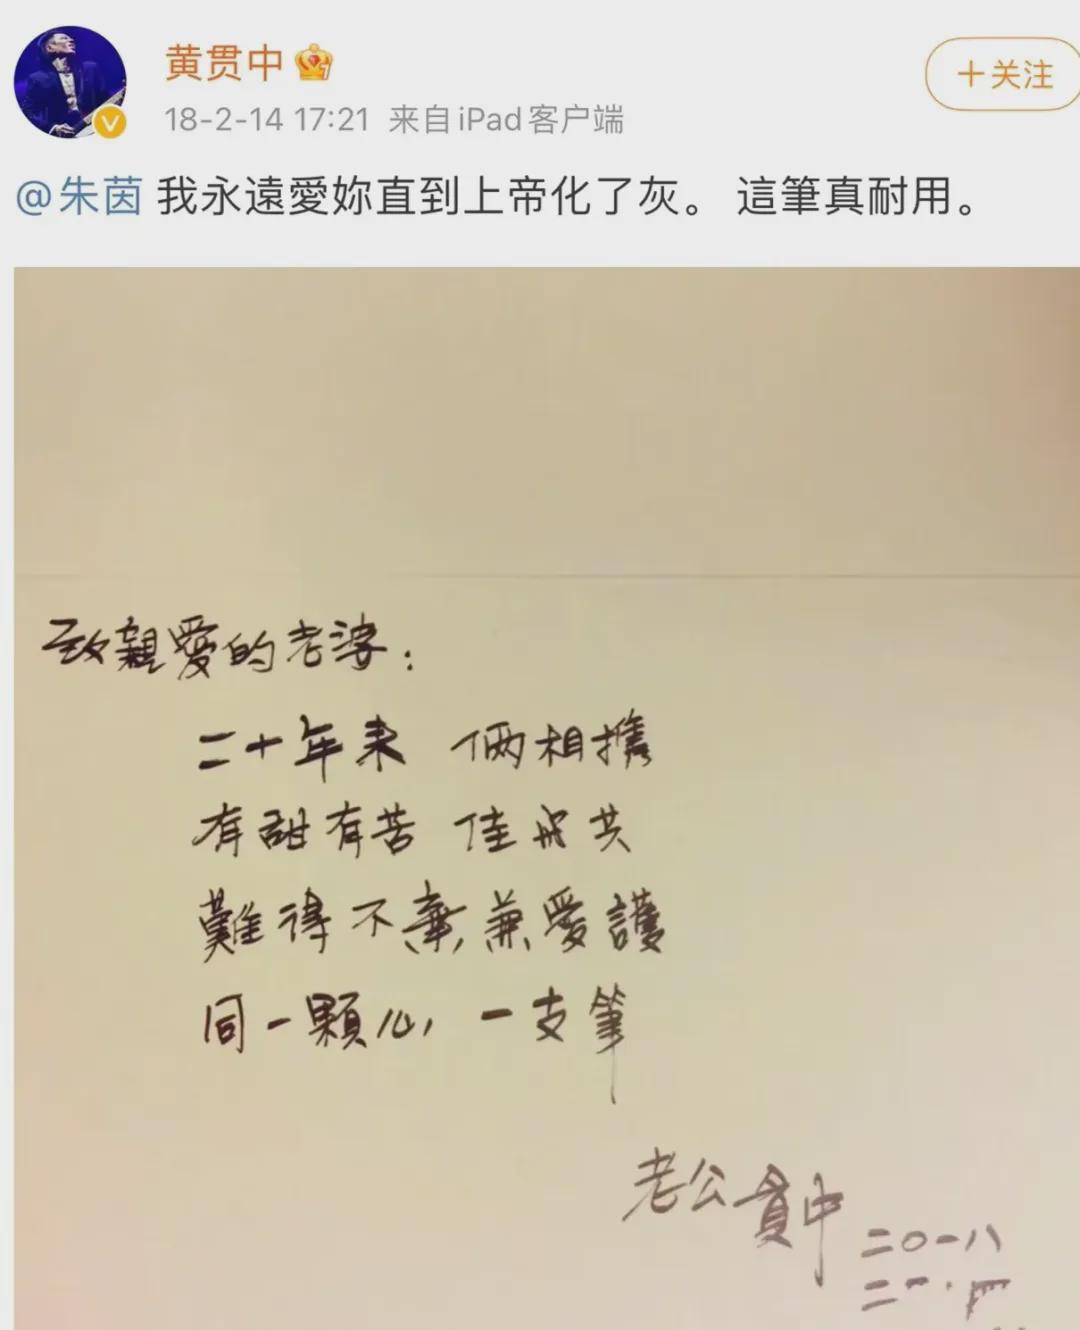 黄贯中
+关注
18-2-14 17:21 来自iPad客户端
@朱茵 我永遠愛妳直到上帝化了灰。 這筆真耐用。
致親愛的老婆：
二十年来 倆相攜
有甜有苦 佳成共
難得不棄兼愛護
同一顆心，一支筆
老公貫中
二〇一八
二一·四